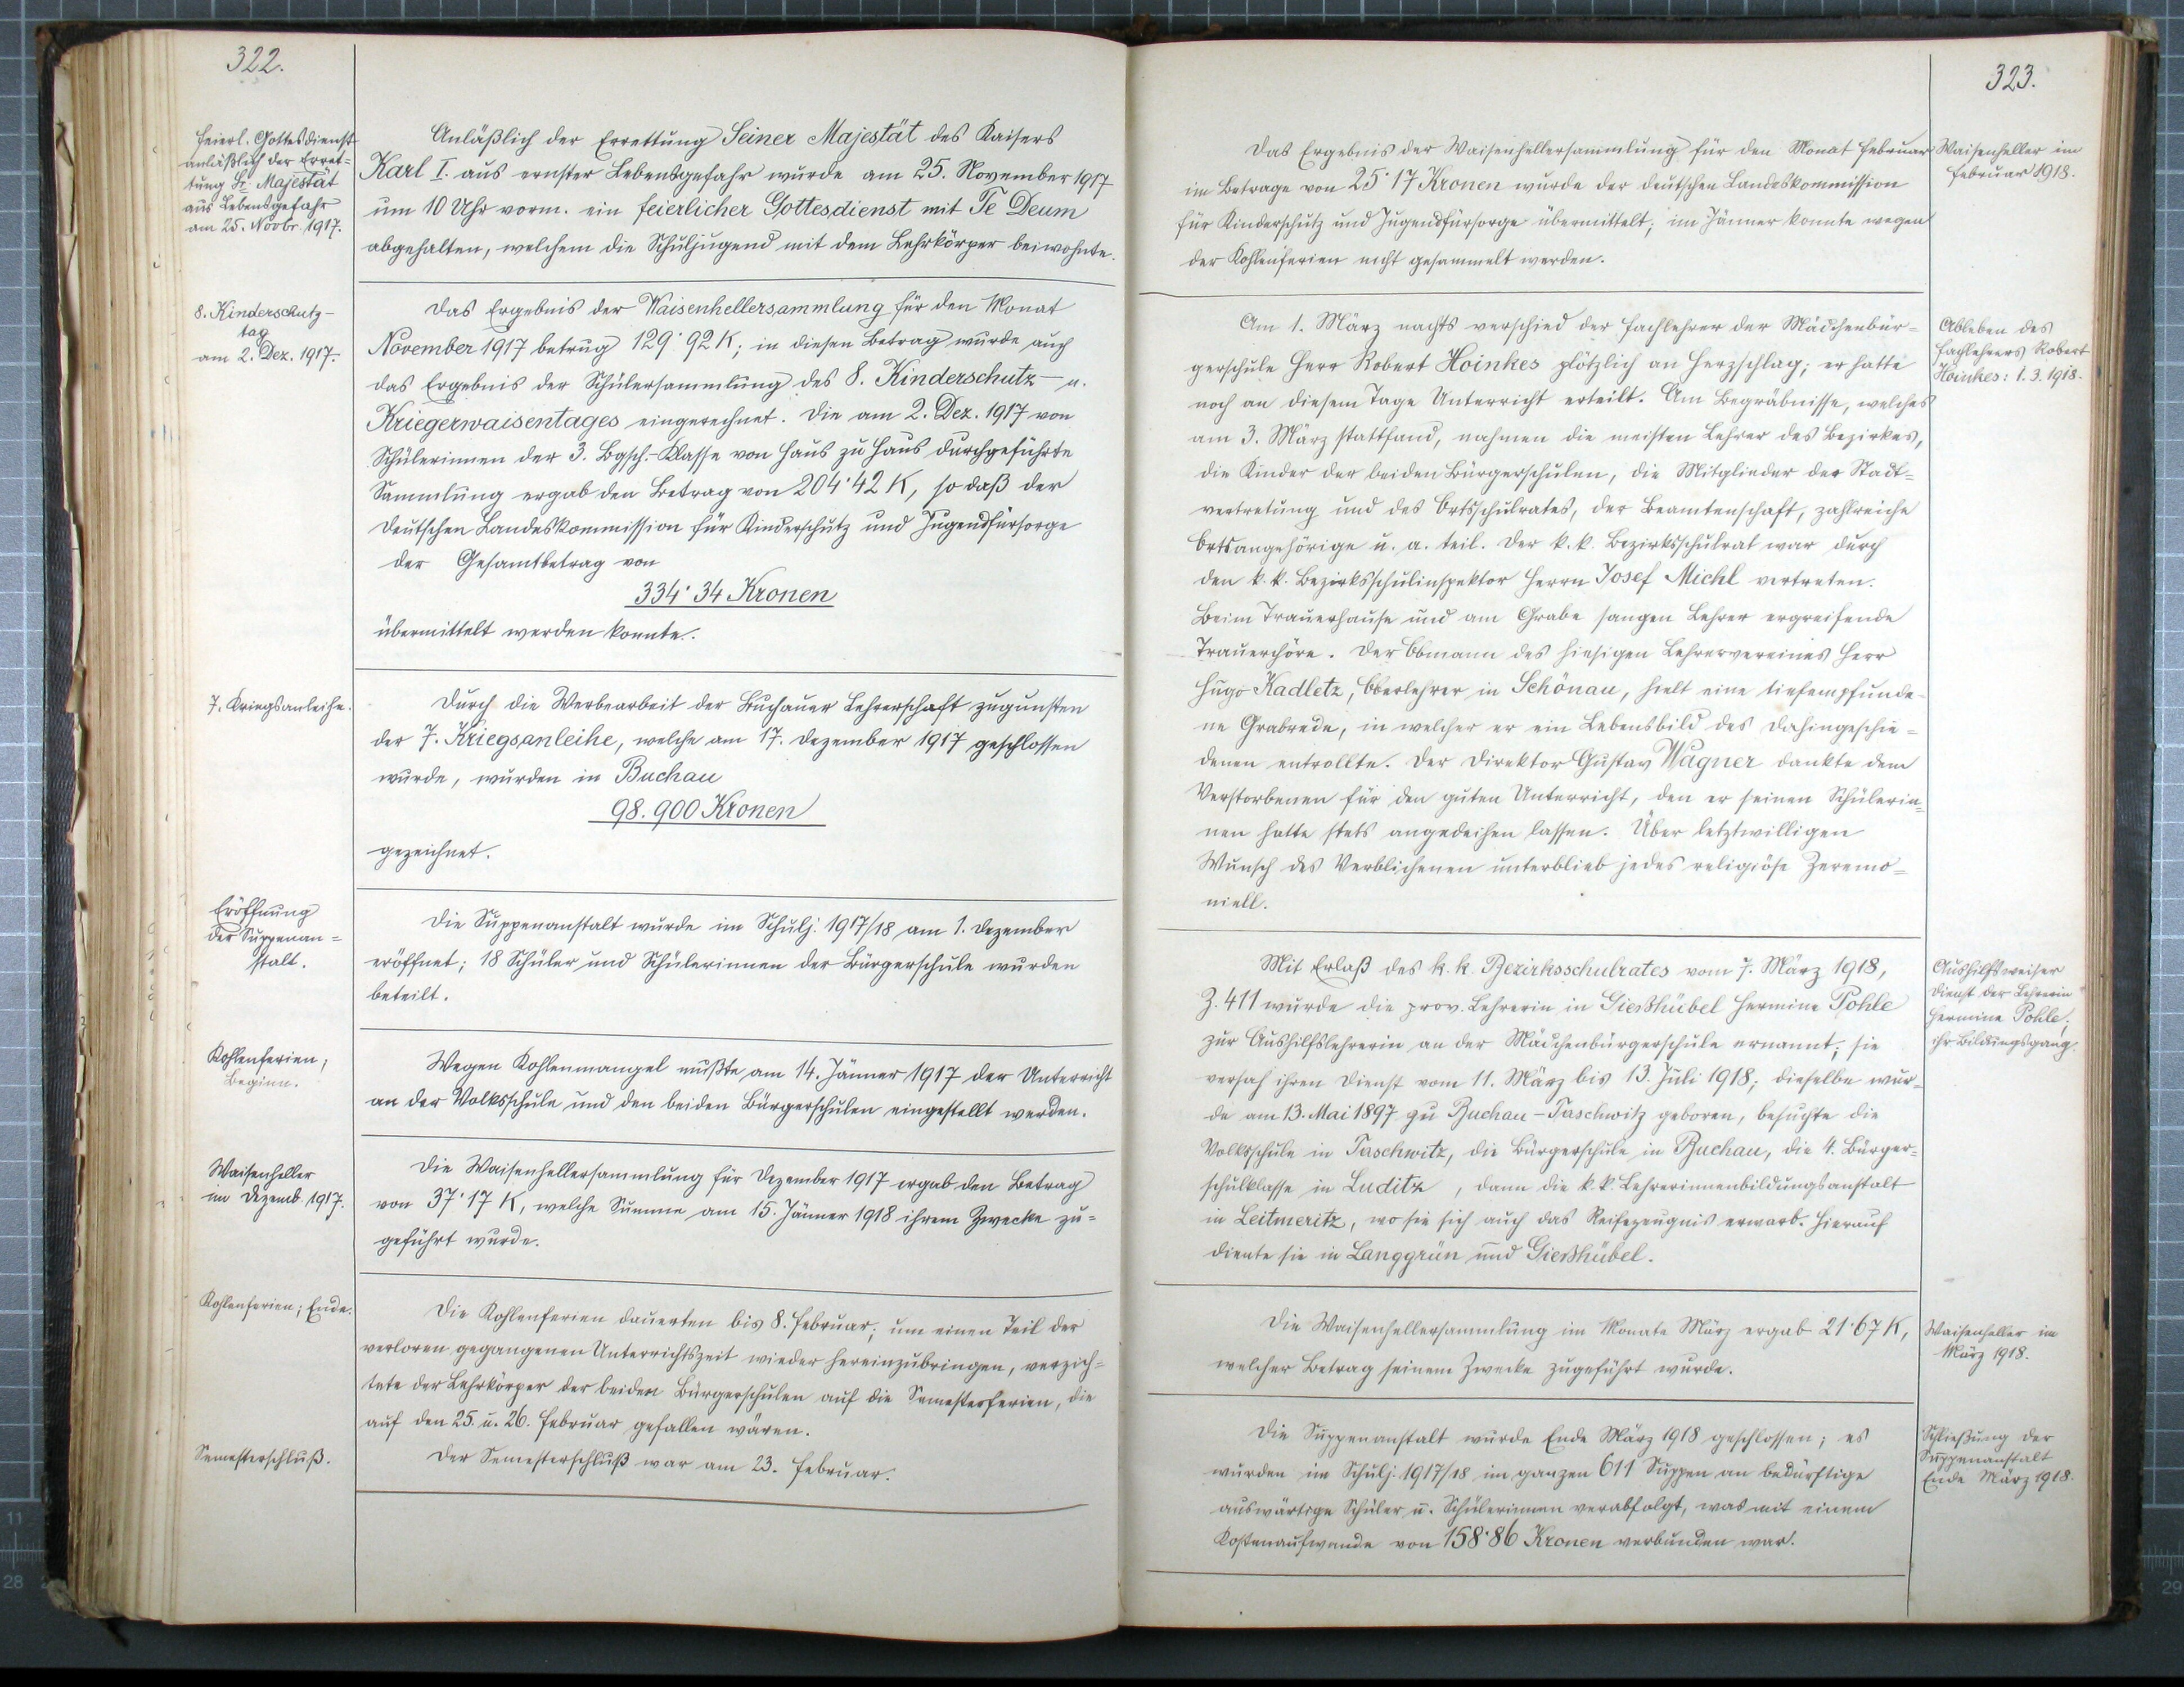 322.
feierl. Gottesdienst
anläßlich der Erret=
tung Sr. Majestät
aus Lebensgefahr
am 25. Novbr. 1917.
Anläßlich der Errettung Seiner Majestät des Kaisers
Karl I. aus ernster Lebensgefahr wurde am 25. November 1917
um 10 Uhr vorm. ein feierlicher Gottesdienst mit Te Deum
abgehalten, welchem die Schuljugend mit dem Lehrkörper beiwohnte.
8. Kinderschutz-
tag
am 2. Dez. 1917.
Das Ergebnis der Waisenhellersammlung für den Monat
November 1917 betrug 129·92 K; in diesen Betrag wurde auch
das Ergebnis der Schülersammlung des 8. Kinderschutz- u.
Kriegerwaisentages eingerechnet. Die am 2. Dez. 1917 von
Schülerinnen der 3. Bgsch.-Klasse von Haus zu Haus durchgeführte
Sammlung ergab den Betrag von 204·42 K, so daß der
deutschen Landeskommission für Kinderschutz und Jugendfürsorge
der Gesamtbetrag von
334·34 Kronen
übermittelt werden konnte.
7. Kriegsanleihe.
Durch die Werbearbeit der Buchauer Lehrerschaft zugunsten
der 7. Kriegsanleihe, welche am 17. Dezember 1917 geschlossen
wurde, wurden in Buchau
98.900 Kronen
gezeichnet.
Eröffnung
der Suppenan=
stalt.
Die Suppenanstalt wurde im Schulj. 1917/18 am 1. Dezember
eröffnet; 18 Schüler und Schülerinnen der Bürgerschule wurden
beteilt.
Kohlenferien;
Beginn.
Wegen Kohlenmangel mußte am 14. Jänner 1917 der Unterricht
an der Volksschule und den beiden Bürgerschulen eingestellt werden.
Waisenheller
im Dezemb. 1917.
Die Waisenhellersammlung für Dezember 1917 ergab den Betrag
von 37·17 K, welche Summe am 15. Jänner 1918 ihrem Zwecke zu=
geführt wurde.
Kohlenferien; Ende.
Die Kohlenferien dauerten bis 8. Februar; um einen Teil der
verloren gegangenen Unterrichtszeit wieder hereinzubringen, verzich=
tete der Lehrkörper der beiden Bürgerschulen auf die Semesterferien, die
auf den 25. u. 26. Februar gefallen wären.
Semesterschluß.
Der Semesterschluß war am 23. Februar.
323.
Das Ergebnis der Waisenhellersammlung für den Monat Februar
im Betrage von 25·17 Kronen wurde der deutschen Landeskommission
für Kinderschutz und Jugendfürsorge übermittelt; im Jänner konnte wegen
der Kohlenferien nicht gesammelt werden.
Waisenheller im
Februar 1918.
Am 1. März nachts verschied der Fachlehrer der Mädchenbür=
gerschule Herr Robert Hoinkes plötzlich an Herzschlag; er hatte
noch an diesem Tage Unterricht erteilt. Am Begräbnisse, welches
am 3. März stattfand, nahmen die meisten Lehrer des Bezirkes,
die Kinder der beiden Bürgerschulen, die Mitglieder der Stadt=
vertretung und des Ortsschulrates, der Beamtenschaft, zahlreiche
Ortsangehörige u. a. teil. Der k. k. Bezirksschulrat war durch
den k. k. Bezirksschulinspektor Herrn Josef Michl vertreten.
Beim Trauerhause und am Grabe sangen Lehrer ergreifende
Trauerchöre. Der Obmann des hiesigen Lehrervereines Herr
Hugo Kadletz, Oberlehrer in Schönau, hielt eine tiefempfunde=
ne Grabrede, in welcher er ein Lebensbild des Dahingeschie=
denen entrollte. Der Direktor Gustav Wagner dankte dem
Verstorbenen für den guten Unterricht, den er seinen Schülerin=
nen hatte stets angedeihen lassen. Über letztwilligen
Wunsch des Verblichenen unterblieb jedes religiöse Zeremo=
niell.
Ableben des
Fachlehrers Robert
Hoinkes: 1.3.1918.
Mit Erlaß des k. k. Bezirksschulrates vom 7. März 1918,
Z. 411 wurde die prov. Lehrerin in Gießhübel Hermine Pohle
zur Aushilfslehrerin an der Mädchenbürgerschule ernannt; sie
versah ihren Dienst vom 11. März bis 13. Juli 1918; dieselbe wur=
de am 13. Mai 1897 zu Buchau-Taschwitz geboren, besuchte die
Volksschule in Taschwitz, die Bürgerschule in Buchau, die 4. Bürger=
schulklasse in Luditz, dann die k. k. Lehrerinnenbildungsanstalt
in Leitmeritz, wo sie sich auch das Reifezeugnis erwarb. Hierauf
diente sie in Langgrün und Gießhübel.
Aushilfsweiser
Dienst der Lehrerin
Hermine Pohle;
ihr Bildungsgang.
Die Waisenhellersammlung im Monate März ergab 21·67 K,
welcher Betrag seinem Zwecke zugeführt wurde.
Waisenheller im
März 1918.
Die Suppenanstalt wurde Ende März 1918 geschlossen; es
wurden im Schulj. 1917/18 im ganzen 611 Suppen an bedürftige
auswärtige Schüler u. Schülerinnen verabfolgt, was mit einem
Kostenaufwande von 158·86 Kronen verbunden war.
Schließung der
Suppenanstalt
Ende März 1918.
11
28
29